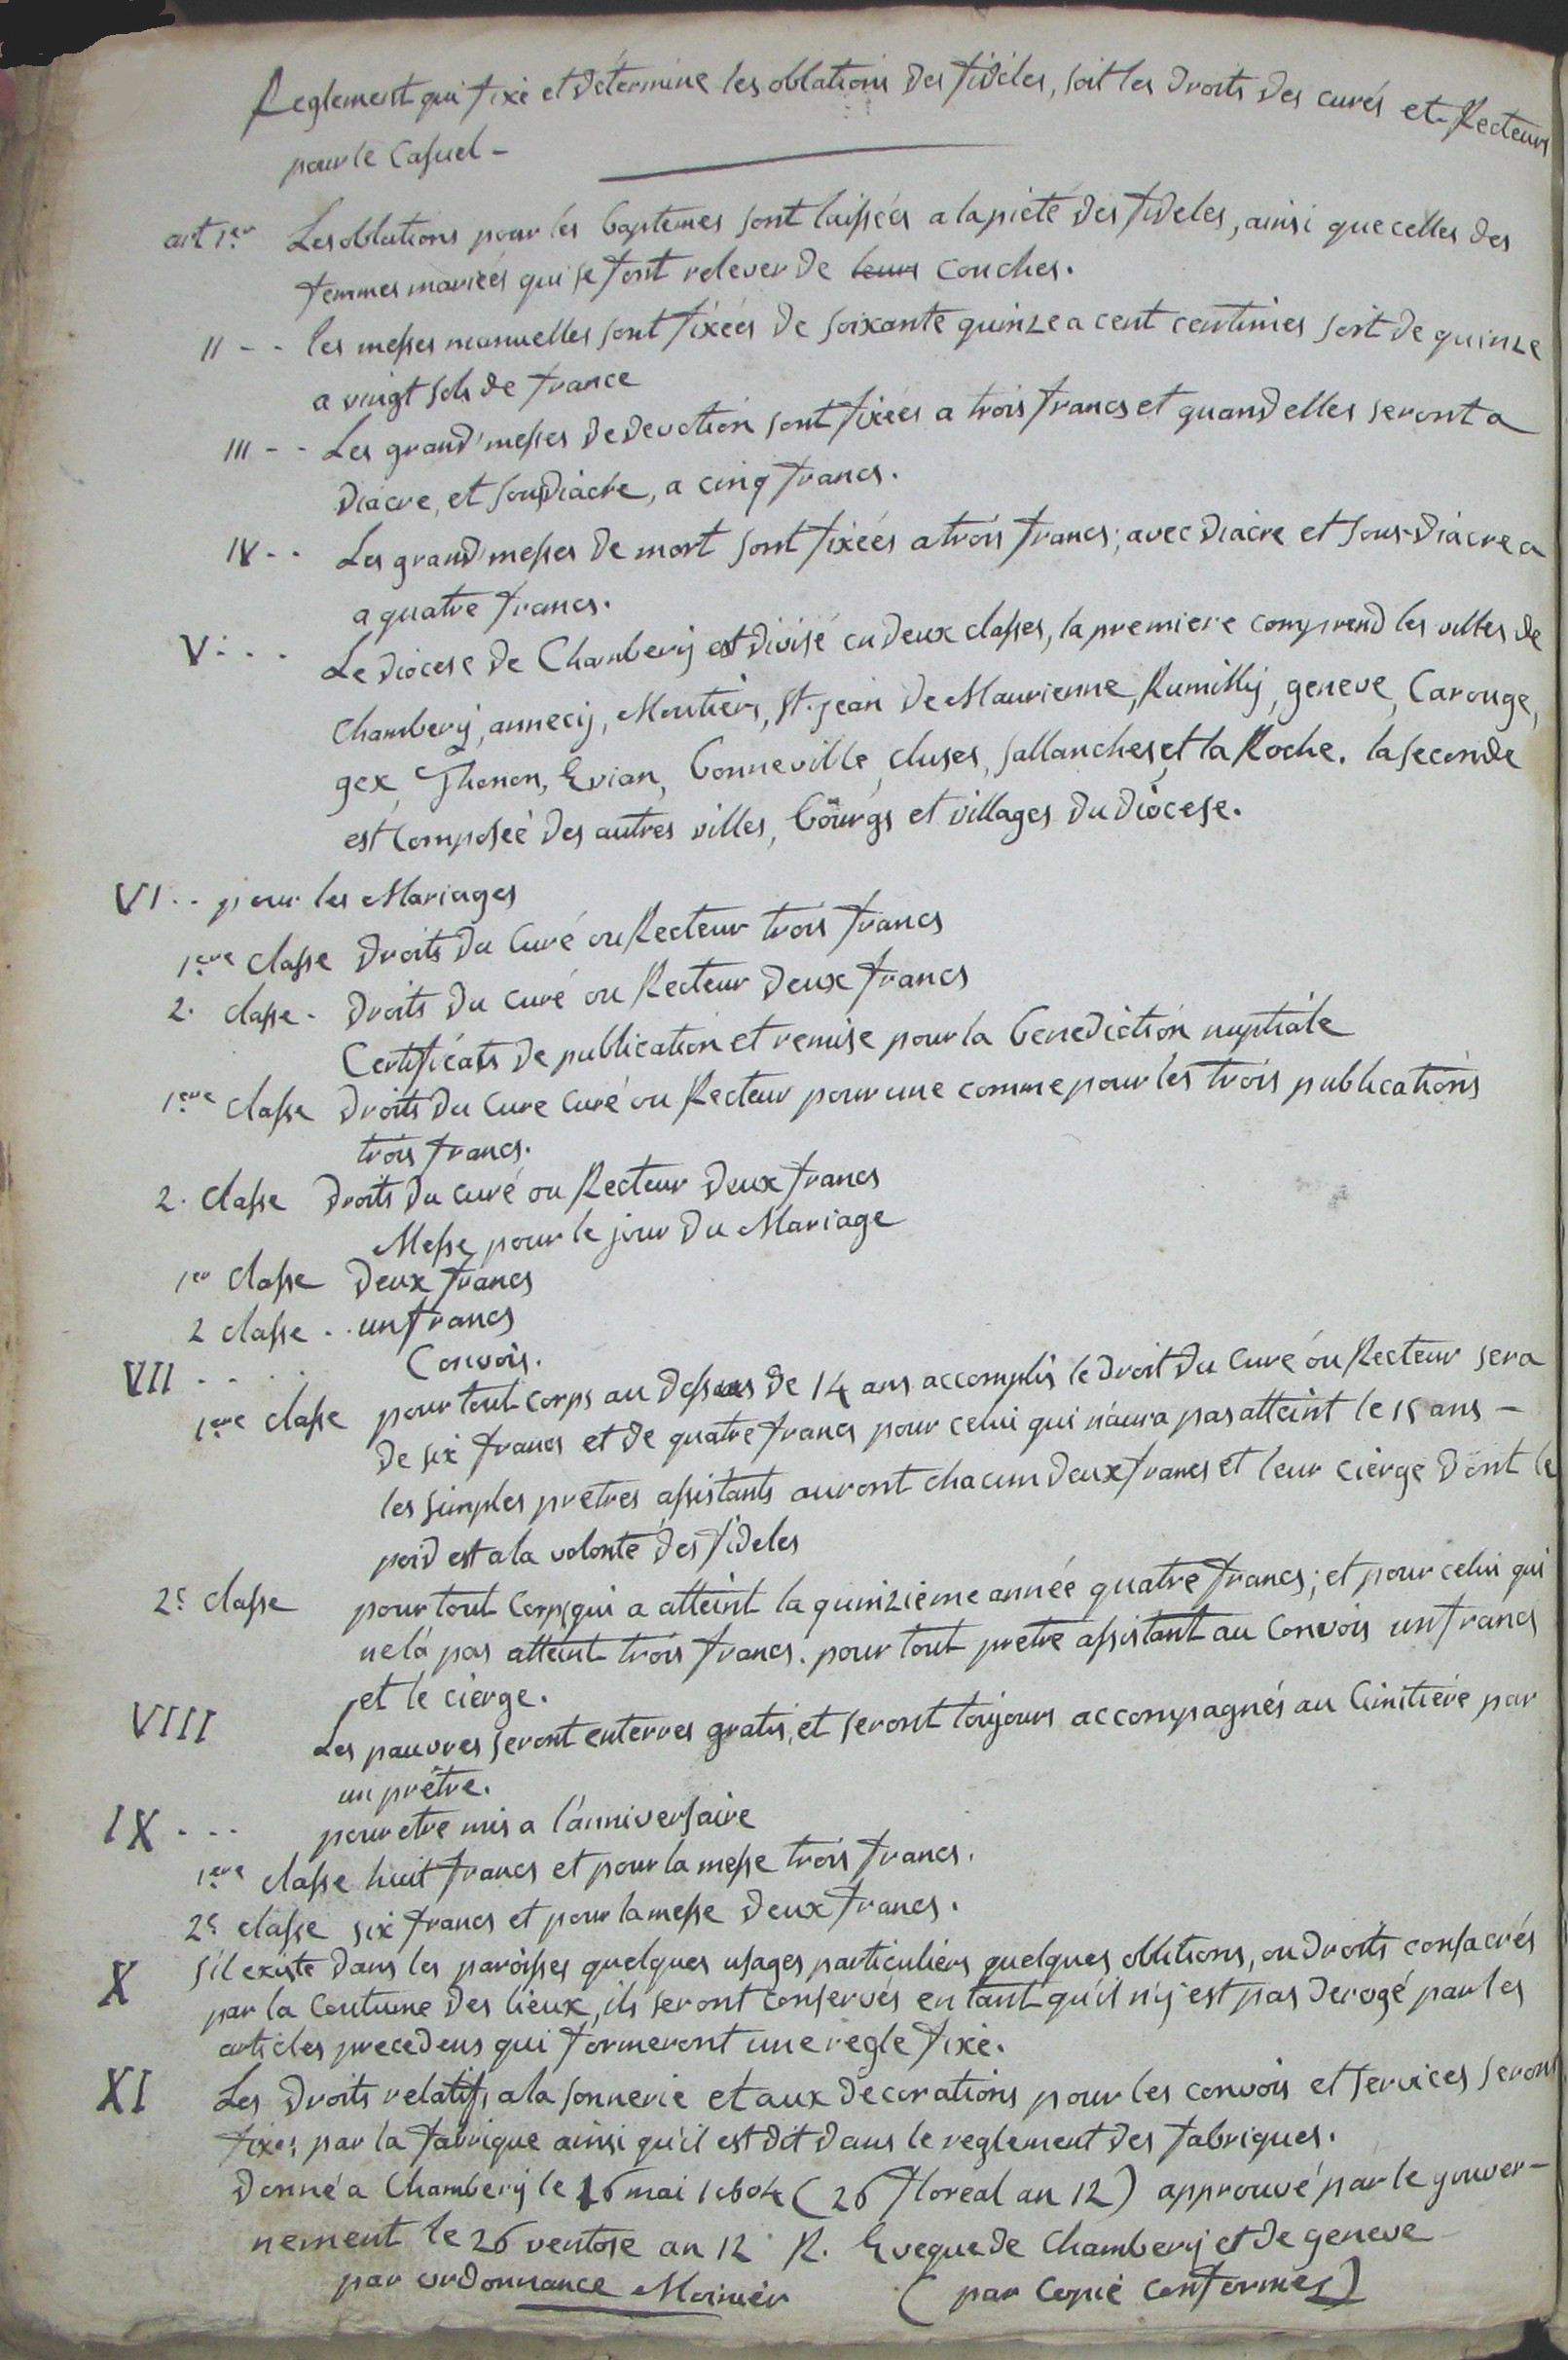 Reglement qui fixe et determine les oblations des fideles, soit les droits des curés et Recteurs
pour le Casuel -
art 1er Les oblations pour les baptemes sont laissées a la pieté des fideles, ainsi que celles des
femmes mariées qui se font relever de leurs couches.
II - - les messes manuelles sont fixées de soixante quinze a cent centimes soit de quinze
a vingt sols de france
III - - Les grand'messes de devotion sont fixées a trois francs et quand elles seront a
diacre, et sousdiacre, a cinq francs.
IV - - Les grand'messes de mort sont fixées a trois francs; avec diacre et sous-diacre a
a quatre francs.
V - - - Le diocese de Chambery est divisé en deux classes, la premiere comprend les villes de
Chambery, annecy, Moutiers, St. jean de Maurienne, Rumilly, geneve, Carouge,
gex, Thonon, Evian, bonneville, cluses, sallanches, et la Roche. la seconde
est composée des autres villes, bourgs et villages du diocese.
VI - - pour les Mariages
1ere classe droits du Curé ou Recteur trois francs
2. classe - droits du curé ou Recteur deux francs
Certificats de publication et remise pour la benediction nuptiale
1ere classe droits du Cure Curé ou Recteur pour une comme pour les trois publications
trois francs.
2. classe droits du curé ou Recteur deux francs
Messe pour le jour du Mariage
1er classe deux francs
2 classe - - un francs
VII - - - - Convois.
1ere classe pour tout corps au dessus de 14 ans accomplis le droit du Curé ou Recteur sera
de six francs et de quatre francs pour celui qui n'aura pas atteint le 15 ans -
les simples pretres assistants auront chacun deux francs et leur cierge dont le
poid est a la volonté des fideles
2e classe pour tout corps qui a atteint la quinzieme année quatre francs; et pour celui qui
ne l'a pas atteint trois francs. pour tout pretre assistant au Convois un francs
et le cierge.
VIII Les pauvres seront enterres gratis, et seront toujours accompagnés au Cimitiere par
un prêtre.
IX - - - pour etre mis a l'anniversaire
1ere classe huit francs et pour la messe trois francs.
2e classe six francs et pour la messe deux francs.
X s'il existe dans les paroisses quelques usages particuliers quelques oblitions, ou droits consacrés
par la coutume des lieux, ils seront conservés en tant qu'il n'y est pas derogé par les
articles precedens qui formeront une regle fixe.
XI Les droits relatifs a la sonnerie et aux decorations pour les convois et services seront
fixes par la fabrique ainsi qu'il est dit dans le reglement des fabriques.
donné a Chambery le 16 mai 1804 (26 floreal an 12) approuvé par le gouver-
nement le 26 ventose an 12 R. Eveque de Chambery et de geneve
par ordonnance (par Copie Conformes)